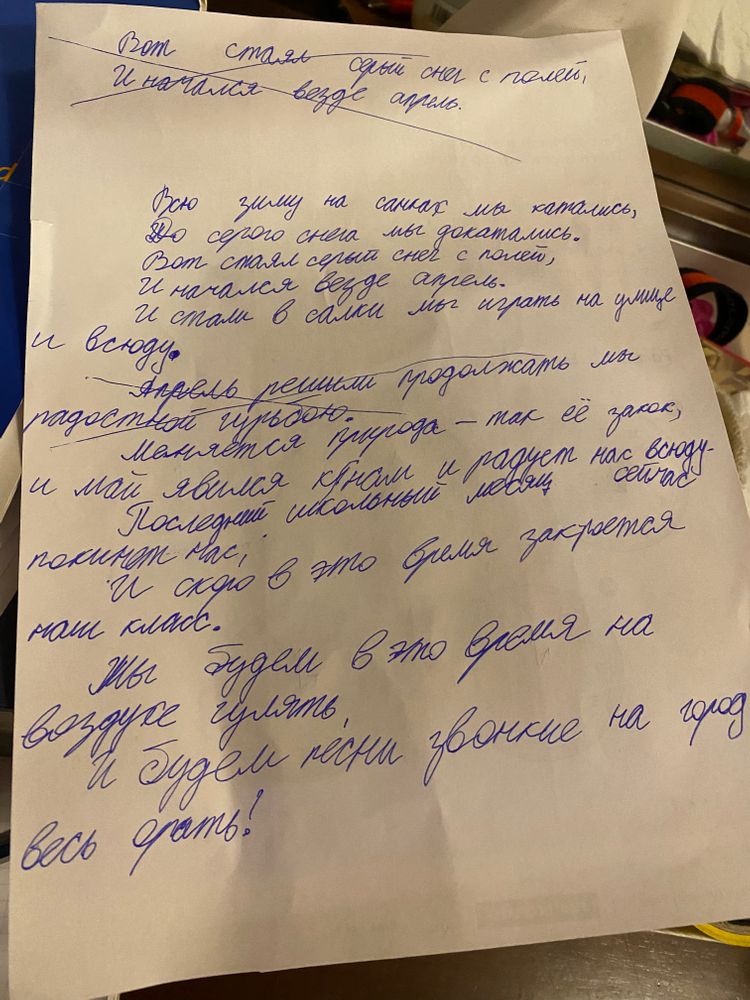 Вот стаял серый снег с полей,
И начался везде апрель.
Всю зиму на санках мы катались,
До серого снега мы докатались.
Вот стаял серый снег с полей,
И начался везде апрель.
И стали в салки мы играть на улице
и всюду.
Апрель решили продолжать мы
радостной гурьбою.
Меняется природа – так её закон,
и май явился к нам и радует нас всюду.
Последний школьный месяц сейчас
покинет нас,
И скоро в это время закроется
наш класс.
Мы будем в это время на
воздухе гулять,
И будем песни звонкие на город
весь орать!